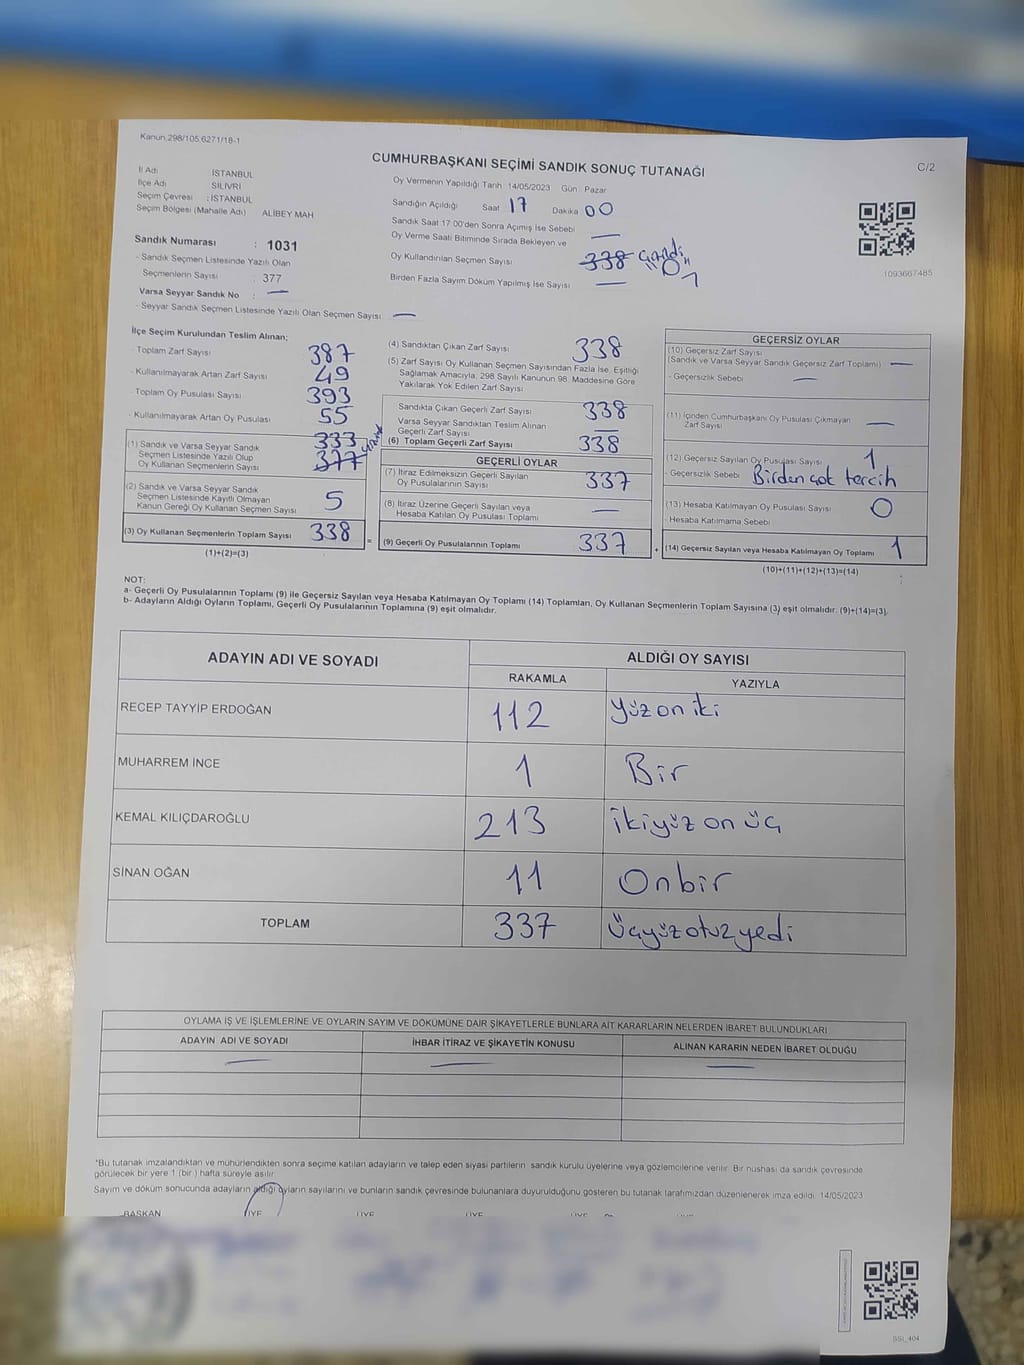 Kanun.298/105.6271/18-1
CUMHURBAŞKANI SEÇİMİ SANDIK SONUÇ TUTANAĞI
C/2
İl Adı İSTANBUL
İlçe Adı SİLİVRİ
Seçim Çevresi : İSTANBUL
Seçim Bölgesi (Mahalle Adı) ALİBEY MAH
Sandık Numarası : 1031
- Sandık Seçmen Listesinde Yazılı Olan
Seçmenlerin Sayısı : 377
Varsa Seyyar Sandık No : —
- Seyyar Sandık Seçmen Listesinde Yazılı Olan Seçmen Sayısı —
Oy Vermenin Yapıldığı Tarih 14/05/2023 Gün Pazar
Sandığın Açıldığı Saat 17 Dakika 00
Sandık Saat 17:00'den Sonra Açımış İse Sebebi —
Oy Verme Saati Bitiminde Sırada Bekleyen ve
Oy Kullandırılan Seçmen Sayısı 338 çizildi
Birden Fazla Sayım Döküm Yapılmış İse Sayısı —
1093667485
İlçe Seçim Kurulundan Teslim Alınan;
- Toplam Zarf Sayısı 387
- Kullanılmayarak Artan Zarf Sayısı 49
- Toplam Oy Pusulası Sayısı 393
- Kullanılmayarak Artan Oy Pusulası 55
(1) Sandık ve Varsa Seyyar Sandık 333
Seçmen Listesinde Yazılı Olup 377
Oy Kullanan Seçmenlerin Sayısı
(2) Sandık ve Varsa Seyyar Sandık
Seçmen Listesinde Kayıtlı Olmayan 5
Kanun Gereği Oy Kullanan Seçmen Sayısı
(3) Oy Kullanan Seçmenlerin Toplam Sayısı 338
(1)+(2)=(3)
(4) Sandıktan Çıkan Zarf Sayısı 338
(5) Zarf Sayısı Oy Kullanan Seçmen Sayısından Fazla İse, Eşitliği
Sağlamak Amacıyla, 298 Sayılı Kanunun 98. Maddesine Göre
Yakılarak Yok Edilen Zarf Sayısı
Sandıkta Çıkan Geçerli Zarf Sayısı 338
Varsa Seyyar Sandıktan Teslim Alınan
Geçerli Zarf Sayısı —
(6) Toplam Geçerli Zarf Sayısı 338
GEÇERLİ OYLAR
(7) İtiraz Edilmeksizin Geçerli Sayılan
Oy Pusulalarının Sayısı 337
(8) İtiraz Üzerine Geçerli Sayılan veya
Hesaba Katılan Oy Pusulası Toplamı —
= (9) Geçerli Oy Pusulalarının Toplamı 337
GEÇERSİZ OYLAR
(10) Geçersiz Zarf Sayısı
(Sandık ve Varsa Seyyar Sandık Geçersiz Zarf Toplamı) —
- Geçersizlik Sebebi —
(11) İçinden Cumhurbaşkanı Oy Pusulası Çıkmayan
Zarf Sayısı —
(12) Geçersiz Sayılan Oy Pusulası Sayısı 1
- Geçersizlik Sebebi Birden çok tercih
(13) Hesaba Katılmayan Oy Pusulası Sayısı 0
- Hesaba Katılmama Sebebi
+ (14) Geçersiz Sayılan veya Hesaba Katılmayan Oy Toplamı 1
(10)+(11)+(12)+(13)=(14)
NOT:
a- Geçerli Oy Pusulalarının Toplamı (9) ile Geçersiz Sayılan veya Hesaba Katılmayan Oy Toplamı (14) Toplamları, Oy Kullanan Seçmenlerin Toplam Sayısına (3) eşit olmalıdır. (9)+(14)=(3).
b- Adayların Aldığı Oyların Toplamı, Geçerli Oy Pusulalarının Toplamına (9) eşit olmalıdır.
ADAYIN ADI VE SOYADI ALDIĞI OY SAYISI
RAKAMLA YAZIYLA
RECEP TAYYİP ERDOĞAN 112 Yüz on iki
MUHARREM İNCE 1 Bir
KEMAL KILIÇDAROĞLU 213 İkiyüz on üç
SİNAN OĞAN 11 Onbir
TOPLAM 337 Üçyüzotuzyedi
OYLAMA İŞ VE İŞLEMLERİNE VE OYLARIN SAYIM VE DÖKÜMÜNE DAİR ŞİKAYETLERLE BUNLARA AİT KARARLARIN NELERDEN İBARET BULUNDUKLARI
ADAYIN ADI VE SOYADI İHBAR İTİRAZ VE ŞİKAYETİN KONUSU ALINAN KARARIN NEDEN İBARET OLDUĞU
— — —
*Bu tutanak imzalandıktan ve mühürlendikten sonra seçime katılan adayların ve talep eden siyasi partilerin sandık kurulu üyelerine veya gözlemcilerine verilir. Bir nüshası da sandık çevresinde
görülecek bir yere 1 (bir ) hafta süreyle asılır.
Sayım ve döküm sonucunda adayların aldığı oyların sayılarını ve bunların sandık çevresinde bulunanlara duyurulduğunu gösteren bu tutanak tarafımızdan düzenlenerek imza edildi. 14/05/2023
BAŞKAN ÜYE ÜYE ÜYE ÜYE